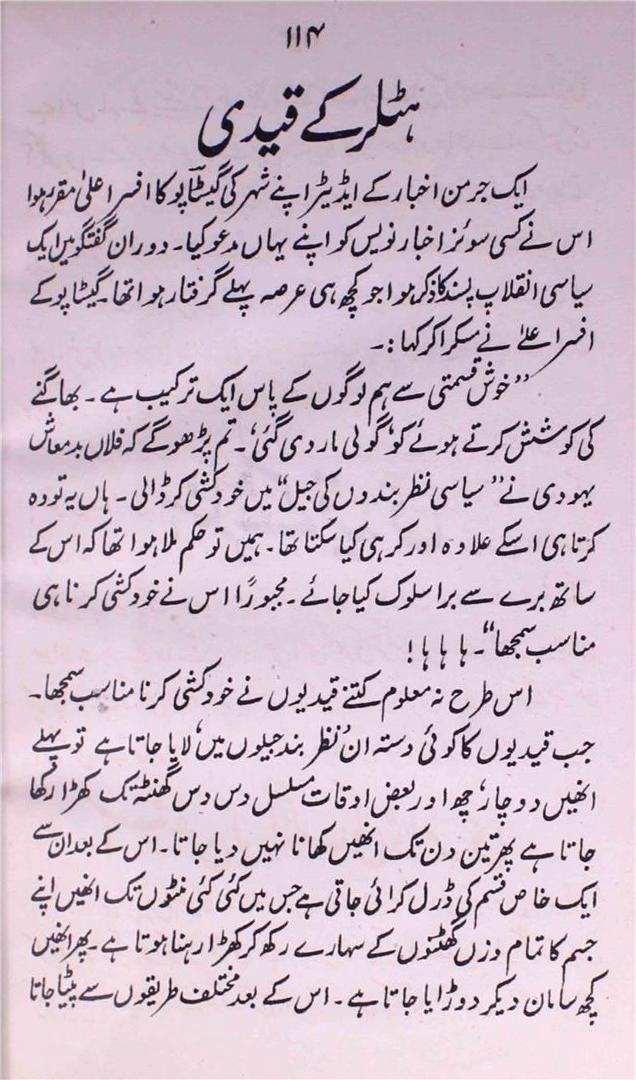 ۱۱۴
ہٹلر کے قیدی
ایک جرمن اخبار کے ایڈیٹر اپنے شہر کی گیسٹاپو کا افسر اعلیٰ مقرر ہوا
اس نے کسی سوئز اخبار نویس کو اپنے یہاں مدعو کیا۔ دوران گفتگو میں ایک
سیاسی انقلاب پسند کا ذکر ہوا جو کچھ ہی عرصہ پہلے گرفتار ہوا تھا۔ گیسٹاپو کے
افسر اعلےٰ نے مسکرا کر کہا:۔
”خوش قسمتی سے ہم لوگوں کے پاس ایک ترکیب ہے۔ بھاگنے
کی کوشش کرتے ہوئے کو ’گولی مار دی گئی‘۔ تم پڑھو گے کہ فلاں بدمعاش
یہودی نے ”سیاسی نظر بندوں کی جیل“ میں خودکشی کر ڈالی۔ ہاں یہ تو وہ
کرتا ہی اسکے علاوہ اور کر ہی کیا سکتا تھا۔ ہمیں تو حکم ملا ہوا تھا کہ اس کے
ساتھ برے سے برا سلوک کیا جائے۔ مجبوراً اس نے خودکشی کرنا ہی
مناسب سمجھا“۔ ہا ہا ہا!
اس طرح نہ معلوم کتنے قیدیوں نے خودکشی کرنا مناسب سمجھا۔
جب قیدیوں کا کوئی دستہ ان ’نظر بند جیلوں میں‘ لایا جاتا ہے تو پہلے
انھیں دو چار، چھ اور بعض اوقات مسلسل دس دس گھنٹہ تک کھڑا رکھا
جاتا ہے پھر تین دن تک انھیں کھانا نہیں دیا جاتا۔ اس کے بعد ان سے
ایک خاص قسم کی ڈرل کرائی جاتی ہے جس میں کئی کئی منٹوں تک انھیں اپنے
جسم کا تمام وزن گھٹنوں کے سہارے رکھ کر کھڑا رہنا ہوتا ہے۔ پھر انھیں
کچھ سامان دیکر دوڑایا جاتا ہے۔ اس کے بعد مختلف طریقوں سے پیٹا جاتا